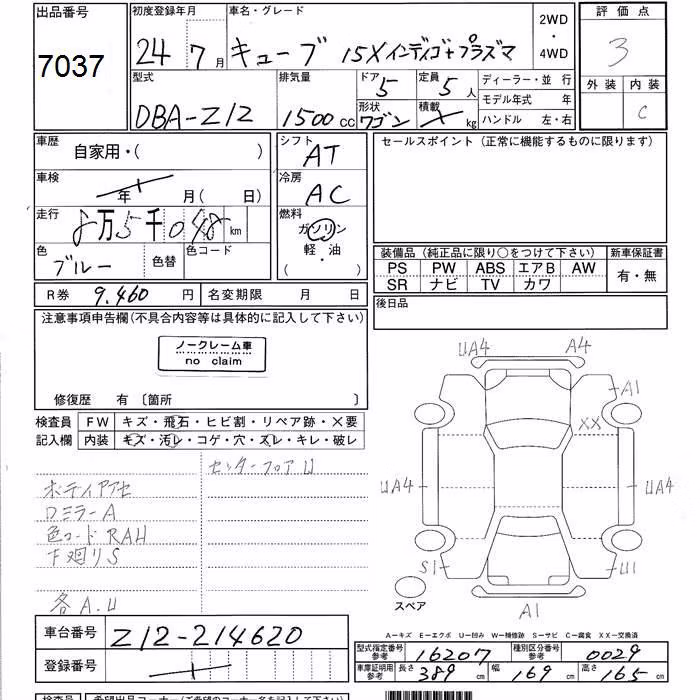 出品番号
7037
初度登録年月
24 7月
車名・グレード
キューブ 15Xインディゴ+プラズマ
2WD
・
4WD
評価点
3
外装 内装
C
型式
DBA-Z12
排気量
1500cc
ドア 5
定員 5人
形状 ワゴン
積載 kg
ディーラー・並 行
モデル年式 年
ハンドル 左・右
車歴
自家用・( )
シフト
AT
セールスポイント(正常に機能するものに限ります)
車検
年 月( 日)
冷房
AC
走行
8万5千048km
燃料
ガソリン
軽・油
( ・ )
色
ブルー
色替
色コード
装備品(純正品に限り○をつけて下さい)
新車保証書
PS PW ABS エアB AW
SR ナビ TV カワ
有・無
R券 9.460円
名変期限 月 日
後日品
注意事項申告欄(不具合内容等は具体的に記入して下さい)
ノークレーム車
no claim
修復歴 有 〔箇所 〕
検査員
記入欄
FW キズ・飛石・ヒビ割・リペア跡・X要
内装 キズ・汚レ・コゲ・穴・スレ・キレ・破レ
センターフロアU
ボディアアセ
ロミラーA
色コードRAH
下廻りS
各A.U
UA4 A4
A1
XX
UA4 UA4
S1 U1
スペア
A1
A-キズ E-エクボ U-凹み W-補修跡 S-サビ C-腐食 XX-交換済
車台番号 Z12-214620
登録番号
型式指定番号
参考
16207
種別区分番号
参考
0029
車庫証明用
参考
長さ 389cm
幅 169cm
高さ 165cm
検査員
希望出品コーナー(ご希望のコーナー名を記入して下さい)